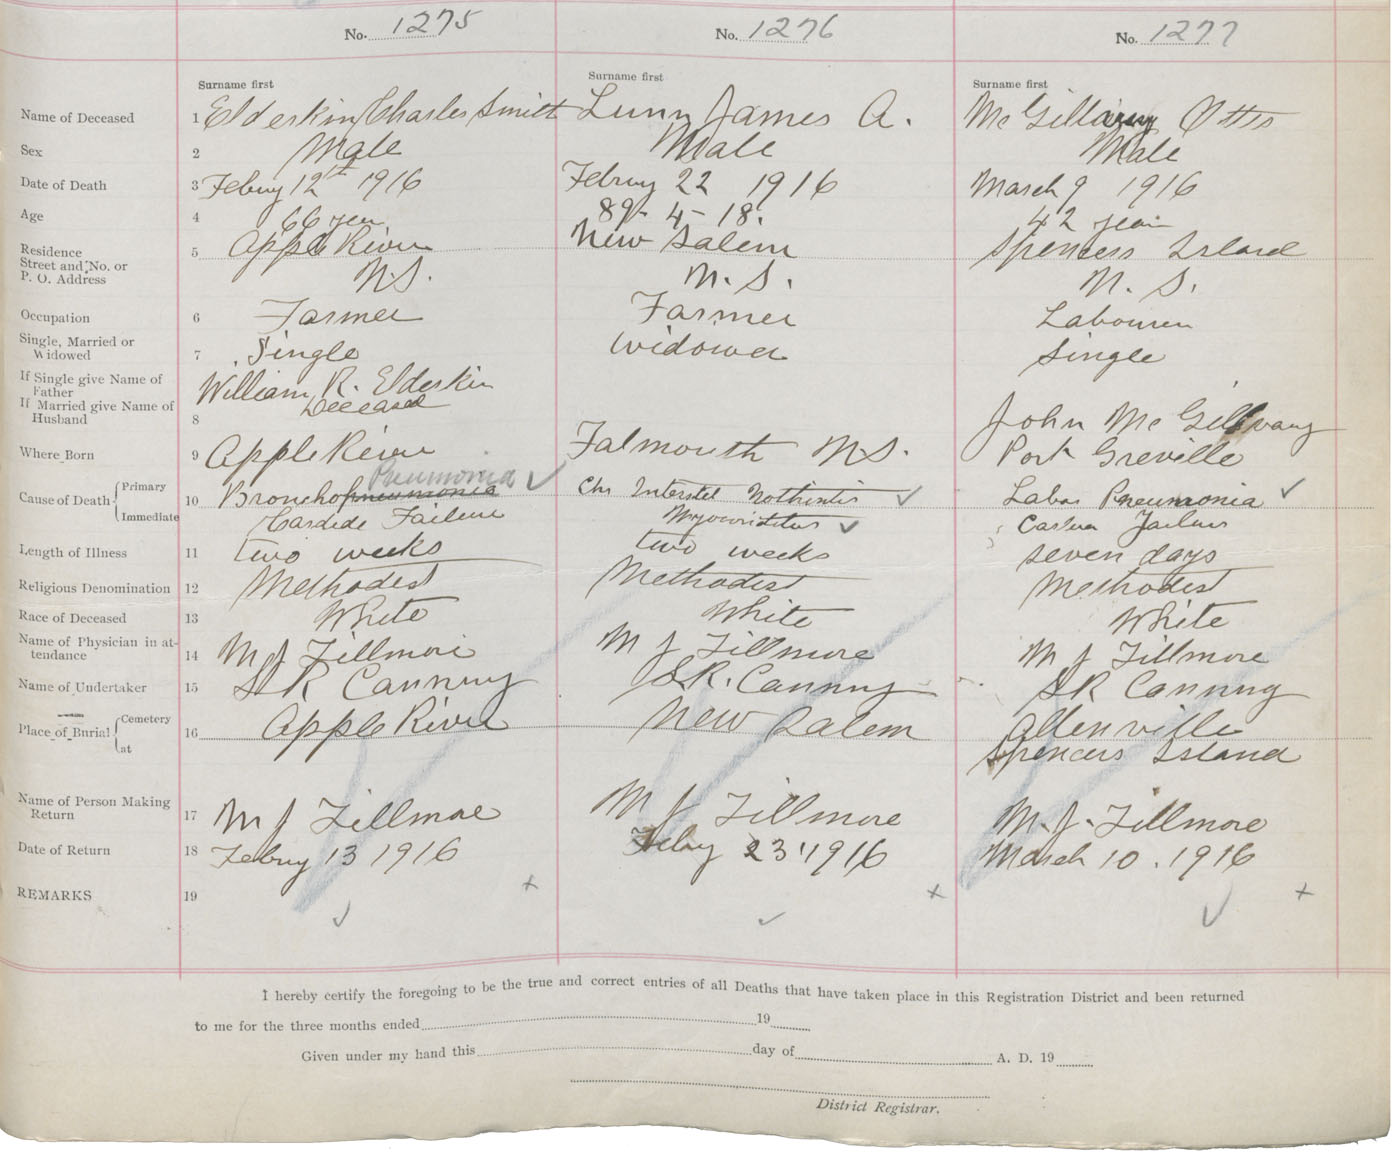 No. 1275 No. 1276 No. 1277
Surname first Surname first Surname first
Name of Deceased 1 Elderkin Charles Smith Lunn James A. McGillvary Ottis
Sex 2 Male Male Male
Date of Death 3 Febuy 12th 1916 Febuy 22 1916 March 9 1916
Age 4 66 year 89-4-18. 42 year
Residence Street and No. or P. O. Address 5 Apple River New Salem Spencers Island
N.S. N.S. N.S.
Occupation 6 Farmer Farmer Labourer
Single, Married or Widowed 7 Single Widower Single
If Single give Name of Father William R. Elderkin
If Married give Name of Husband 8 Deceased John McGillvary
Where Born 9 Apple River Falmouth N.S. Port Greville
Pneumonia
Cause of Death Primary 10 Bronchopneumonia Chr Interstel Labar Pneumonia
Immediate Cardide Failure
Length of Illness 11 two weeks two weeks seven days
Religious Denomination 12 Methodist Methodist Methodist
Race of Deceased 13 White White White
Name of Physician in attendance 14 M J Fillmore M J Fillmore M J Fillmore
Name of Undertaker 15 S R Canning S.R. Canning S R Canning
Place of Burial Cemetery at 16 Apple River New Salem Allenville
Spencers Island
Name of Person Making Return 17 M J Fillmore M J Fillmore M. J. Fillmore
Date of Return 18 Febuy 13 1916 Febuy 23 1916 March 10. 1916
REMARKS 19
I hereby certify the foregoing to be the true and correct entries of all Deaths that have taken place in this Registration District and been returned
to me for the three months ended 19
Given under my hand this day of A. D. 19
District Registrar.